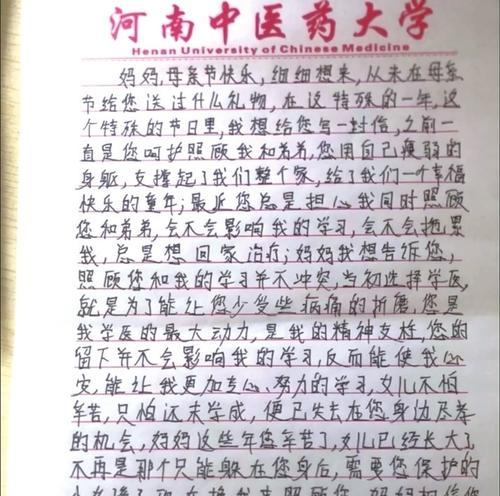 河南中医药大学
Henan University of Chinese Medicine
妈妈,母亲节快乐,细细想来,从未在母亲
节给您送过什么礼物,在这特殊的一年,这
个特殊的节日里,我想给您写一封信,之前一
直是您呵护照顾我和弟弟,您用自己瘦弱的
身躯,支撑起了我们整个家,给了我们一个幸福
快乐的童年;最近您总是担心我同时照顾
您和弟弟,会不会影响我的学习,会不会拖累
我,总是想回家治疗;妈妈我想告诉您,
照顾您和我的学习并不冲突,当初选择学医,
就是为了能让您少受些病痛的折磨,您是
我学医的最大动力,是我的精神支柱,您的
留下并不会影响我的学习,反而能使我心
安,能让我更加专心、努力的学习,女儿不怕
辛苦,只怕还未学成,便已失去在您身边尽孝
的机会,妈妈这些年您辛苦了,女儿已经长大了,
不再是那个只能躲在您身后,需要您保护的